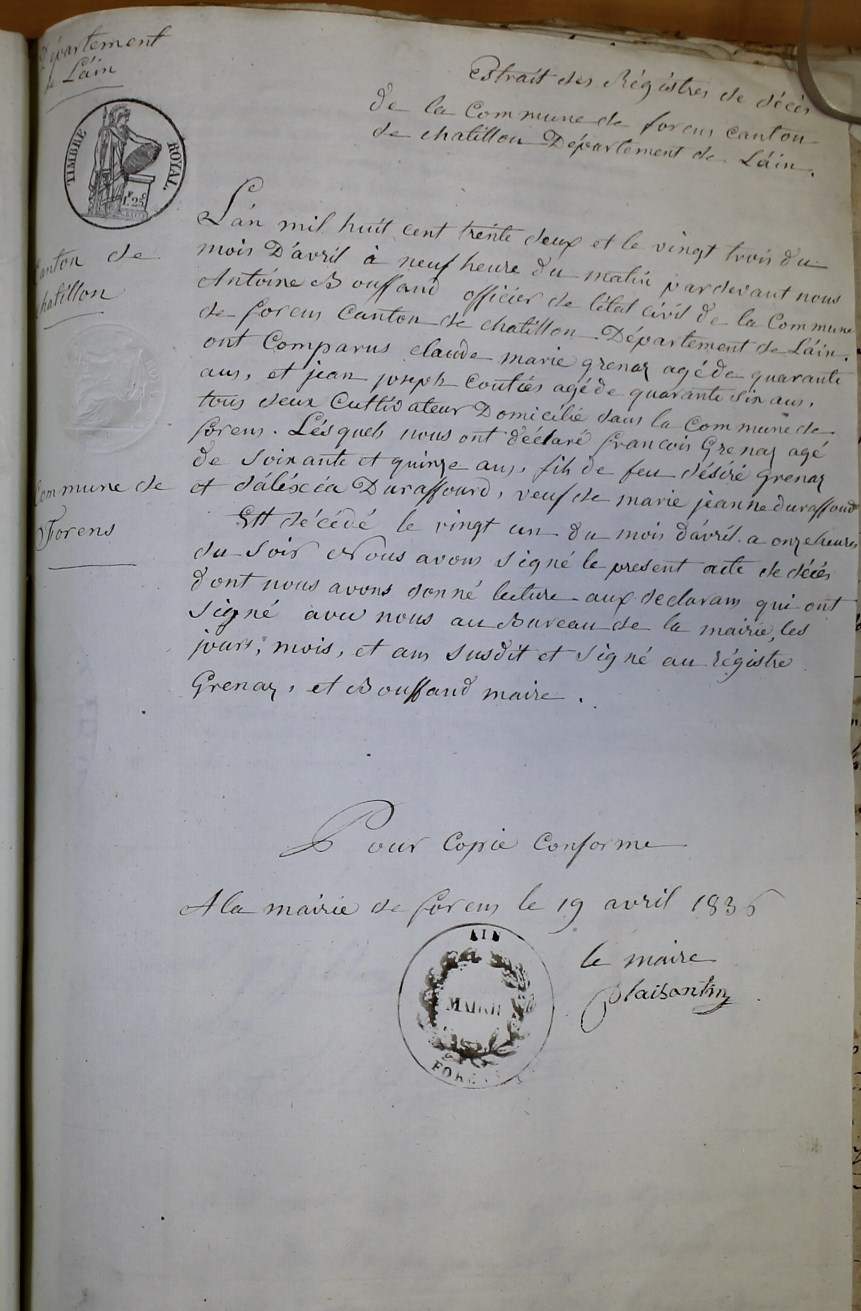 Département
de Láin
TIMBRE ROYAL.
1.F 25.C
Canton de
chatillon
Commune de
Forens
Extrait des Régistres de décès
de la Commune de forens canton
de chatillon Département de Láin.
Lán mil huit cent trente deux et le vingt trois du
mois D'avril à neuf heure du matin pardevant nous
Antoine Bouffand officier de l'état civil de la Commune
de forens Canton de chatillon Département de Láin.
ont Comparus claude marie grenaz agé de quarante
ans, et jean joseph Coutiés agé de quarante six ans,
tous deux Cultivateur Domicilié dans la Commune de
forens. Lésquels nous ont déclaré françois Grenaz agé
de Soixante et quinze ans, fils de feu désiré grenaz
et d'aléxéa Duraffourd, veuf de marie jeanne duraffourd
Est décédé le vingt un du mois d'avril a onze heures
du soir Nous avons signé le present acte de décès
dont nous avons donné lecture aux declarans qui ont
Signé avec nous au Bureau de la mairie, les
jours, mois, et ans Susdit et signé au régistre
Grenaz, et Bouffand maire.
Pour Copie Conforme
A la mairie de forens le 19 avril 1836
le maire
AIN
MAIRIE